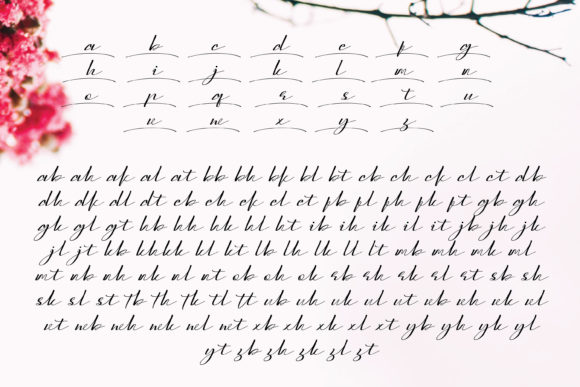 a b c d e f g
h i j k l m n
o p q r s t u
v w x y z
ab ah ak al at bb bh bk bl bt cb ch ck cl ct db
dh dk dl dt eb eh ek el et fb fl fh fk ft gb gh
gk gl gt hb hh hk hl ht ib ih ik il it jb jh jk
jl jt kb kh kk kl kt lb lh lk ll lt mb mh mk ml
mt nb nh nk nl nt ob oh ok rb rh rk rl rt sb sh
sk sl st tb th tk tl tt ub uh uk ul ut vb vh vk vl
vt wb wh wk wl wt xb xh xk xl xt yb yh yk yl
yt zb zh zk zl zt